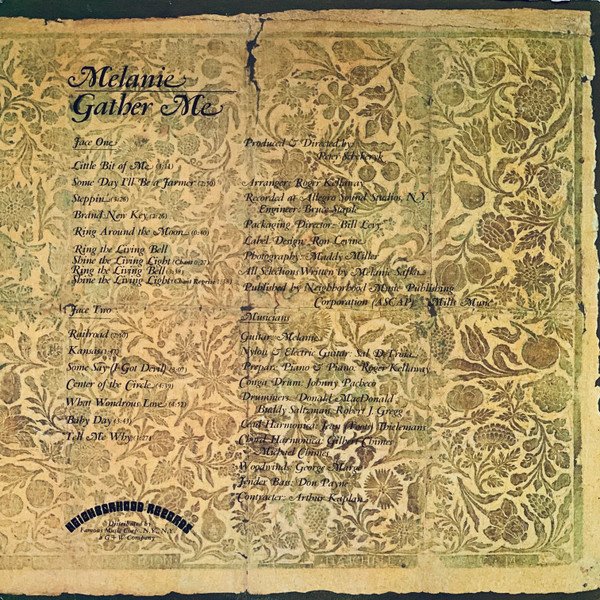 Melanie
Gather Me
Face One
Little Bit of Me
Some Day I'll Be a Farmer
Steppin'
Brand New Key
Ring Around the Moon
Ring the Living Bell
Shine the Living Light
Ring the Living Bell
Shine the Living Light
Face Two
Railroad
Kansas
Some Say (I Got Devil)
Center of the Circle
What Wondrous Love
Baby Day
Tell Me Why
Produced & Directed by
Peter Schekeryk
Arranger: Roger Kellaway
Recorded at Allegro Sound Studios, N.Y.
Engineer: Bruce Staple
Packaging Director: Bill Levy
Label Design: Ron Levine
Photography: Maddy Miller
All Selections Written by Melanie Safka
Published by Neighborhood Music Publishing
Corporation (ASCAP)
Musicians
Guitar: Melanie
Nylon & Electric Guitar: Sal
Prepar. Piano & Piano: Roger Kellaway
Conga Drum: Johnny Pacheco
Drummers: Donald MacDonald
Buddy Saltzman, Robert J. Gregg
Lead Harmonica: Jean
Chord Harmonica: Gilbert
Michael
Woodwinds: George Marge
Fender Bass: Don Payne
Contracter: Arthur Kaplan
NEIGHBORHOOD RECORDS
Distributed by
Famous Music Corp., N.Y., N.Y.
a G + W Company